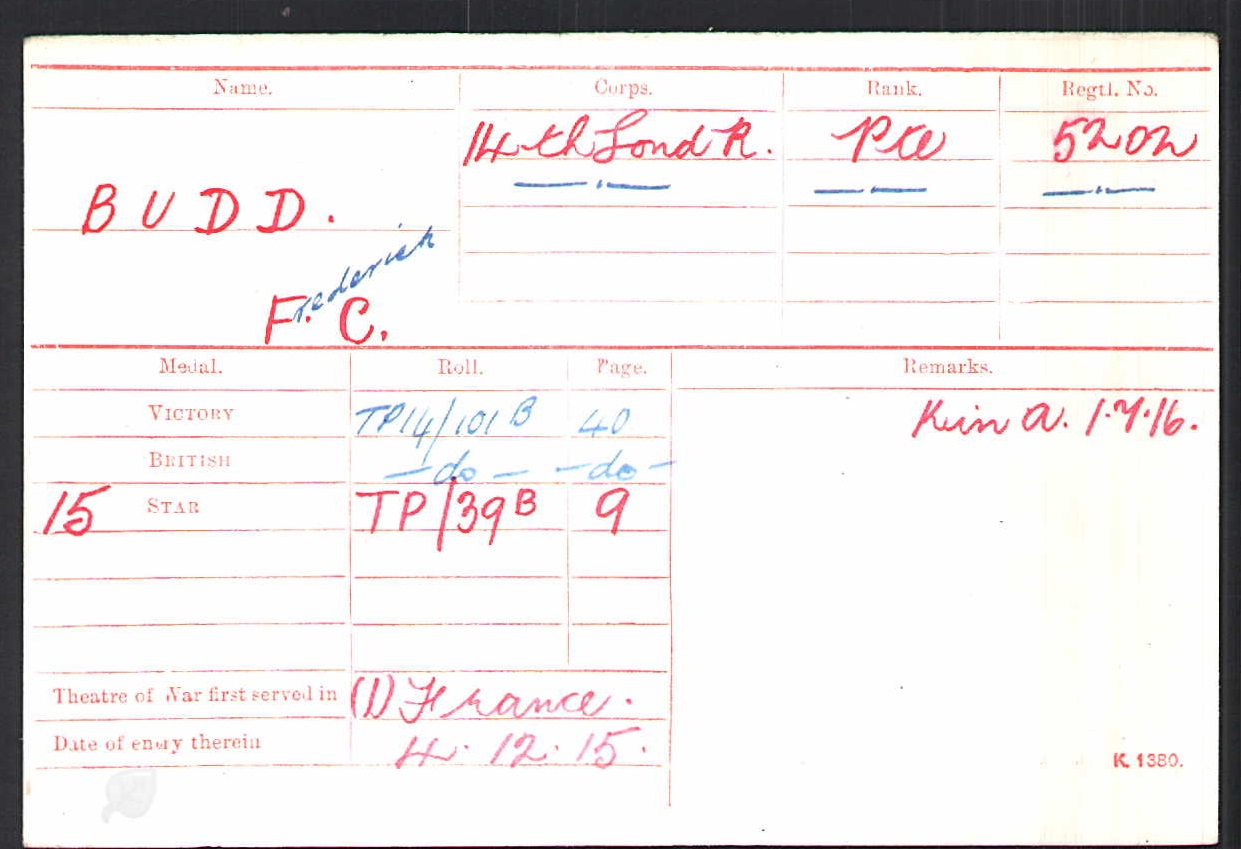 Name. Corps. Rank. Regtl. No.
14th Lond R. Pte 5202
BUDD. — " — — " — — " —
Frederick
F. C.
Medal. Roll. Page. Remarks.
VICTORY TP14/101B 40 K in a. 1.7.16.
BRITISH — do — — do —
15 STAR TP/39B 9
Theatre of War first served in (1) France.
Date of entry therein 4.12.15.
K. 1380.